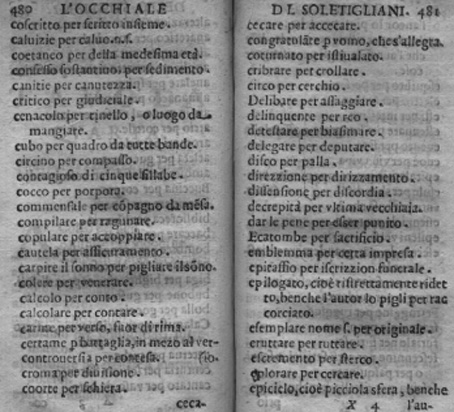 480 L'OCCHIALE
coscritto per scritto insieme.
caluizie per caluo.o.s.
coetanco per della medesima età.
consesso sostantiuo: per sedimento.
canitie per canutezza.
critico per giudiciale.
cenacolo per tinello, o luogo da
mangiare.
cubo per quadro da tutte bande.
circino per compasso.
contagioso di cinque sillabe.
cocco per porpora.
commensale per cōpagno da mēsa.
compilare per ragunare.
copulare per accoppiare.
cautela per assicuramento.
carpire il sonno per pigliare il sōno.
colere per venerare.
calcolo per conto.
calcolare per contare.
carme per verso, fuor di rima.
certame p battaglia, in mezo al ver-
controuersia per contesa. (so.
croma per diuisione.
coorte per schiera.
ceca-
DE L SOLETIGLIANI. 481
cecare per accecare.
congratolāre p vomo, che s'allegra.
coturnato per istiualato.
cribrare per crollare.
circo per cerchio.
Delibare per assaggiare.
delinquente per reo.
detestare per biasimare.
delegare per deputare.
disco per palla.
direzzione per dirizzamento.
dissensione per discordia.
decrepità per vltima vecchiaia.
dar le pene per esser punito.
Ecatombe per sacrificio.
emblemma per certa impresa.
epitaffio per iscrizzion funerale.
epilogato, cioè ristrettamente ridet
to, benche l'autor lo pigli per rac
corciato.
esemplare nome s. per originale.
eruttare per ruttare.
escremento per sterco.
esplorare per cercare.
epiciclo, cioè picciola sfera, benche
X 4 l'au-